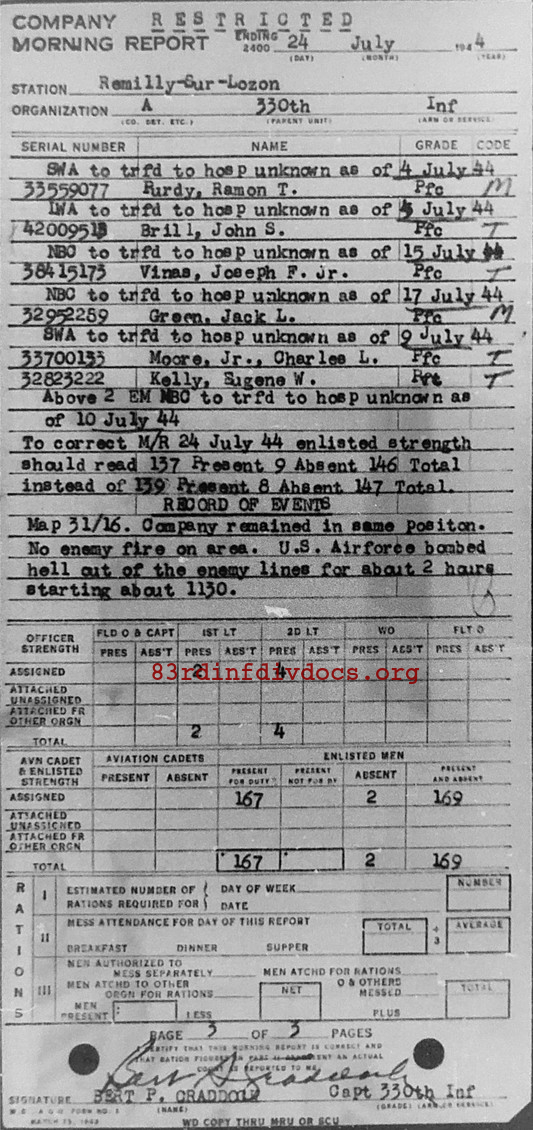 COMPANY RESTRICTED
MORNING REPORT ENDING 2400 24 July 1944
(DAY) (MONTH) (YEAR)
STATION Remilly-Sur-Lozon
ORGANIZATION A 330th Inf
(CO. DET. ETC.) (PARENT UNIT) (ARM OR SERVICE)
SERIAL NUMBER NAME GRADE CODE
SWA to trfd to hosp unknown as of 4 July 44
33559077 Purdy, Ramon T. Pfc M
LWA to trfd to hosp unknown as of 5 July 44
42009513 Brill, John S. Pfc T
NBC to trfd to hosp unknown as of 15 July 44
38415173 Vinas, Joseph F. Jr. Pfc T
NBC to trfd to hosp unknown as of 17 July 44
32952289 Green, Jack L. Pfc M
SWA to trfd to hosp unknown as of 9 July 44
33700133 Moore, Jr., Charles L. Pfc T
32823222 Kelly, Eugene W. Pvt T
Above 2 EM NBC to trfd to hosp unknown as
of 10 July 44
To correct M/R 24 July 44 enlisted strength
should read 137 Present 9 Absent 146 Total
instead of 139 Present 8 Absent 147 Total.
RECORD OF EVENTS
Map 31/16. Company remained in same positon.
No enemy fire on area. U.S. Airforce bombed
hell out of the enemy lines for about 2 hours
starting about 1130.
OFFICER STRENGTH FLD O & CAPT 1ST LT 2D LT WO FLT O
PRES ABS'T PRES ABS'T PRES ABS'T PRES ABS'T PRES ABS'T
ASSIGNED 2 4
83rdinfdivdocs.org
ATTACHED UNASSIGNED
ATTACHED FR OTHER ORGN
TOTAL 2 4
AVN CADET & ENLISTED STRENGTH AVIATION CADETS ENLISTED MEN
PRESENT ABSENT PRESENT FOR DUTY PRESENT NOT FOR DY ABSENT PRESENT AND ABSENT
ASSIGNED 167 2 169
ATTACHED UNASSIGNED
ATTACHED FR OTHER ORGN
TOTAL 167 2 169
RATIONS
I ESTIMATED NUMBER OF RATIONS REQUIRED FOR DAY OF WEEK DATE NUMBER
II MESS ATTENDANCE FOR DAY OF THIS REPORT TOTAL ÷ 3 AVERAGE
BREAKFAST DINNER SUPPER
III MEN AUTHORIZED TO MESS SEPARATELY MEN ATCHD FOR RATIONS
MEN ATCHD TO OTHER ORGN FOR RATIONS NET O & OTHERS MESSED TOTAL
MEN PRESENT LESS PLUS
PAGE 3 OF 3 PAGES
CERTIFY THAT THIS MORNING REPORT IS CORRECT AND
THAT RATION FIGURES IN PART III REPRESENT AN ACTUAL
COUNT AS REPORTED TO ME
Bert P. Craddock
SIGNATURE BERT P. CRADDOCK Capt 330th Inf
(NAME) (GRADE) (ARM OR SERVICE)
W.D. A.G.O. FORM NO. 1
MARCH 15, 1942
WD COPY THRU MRU OR SCU